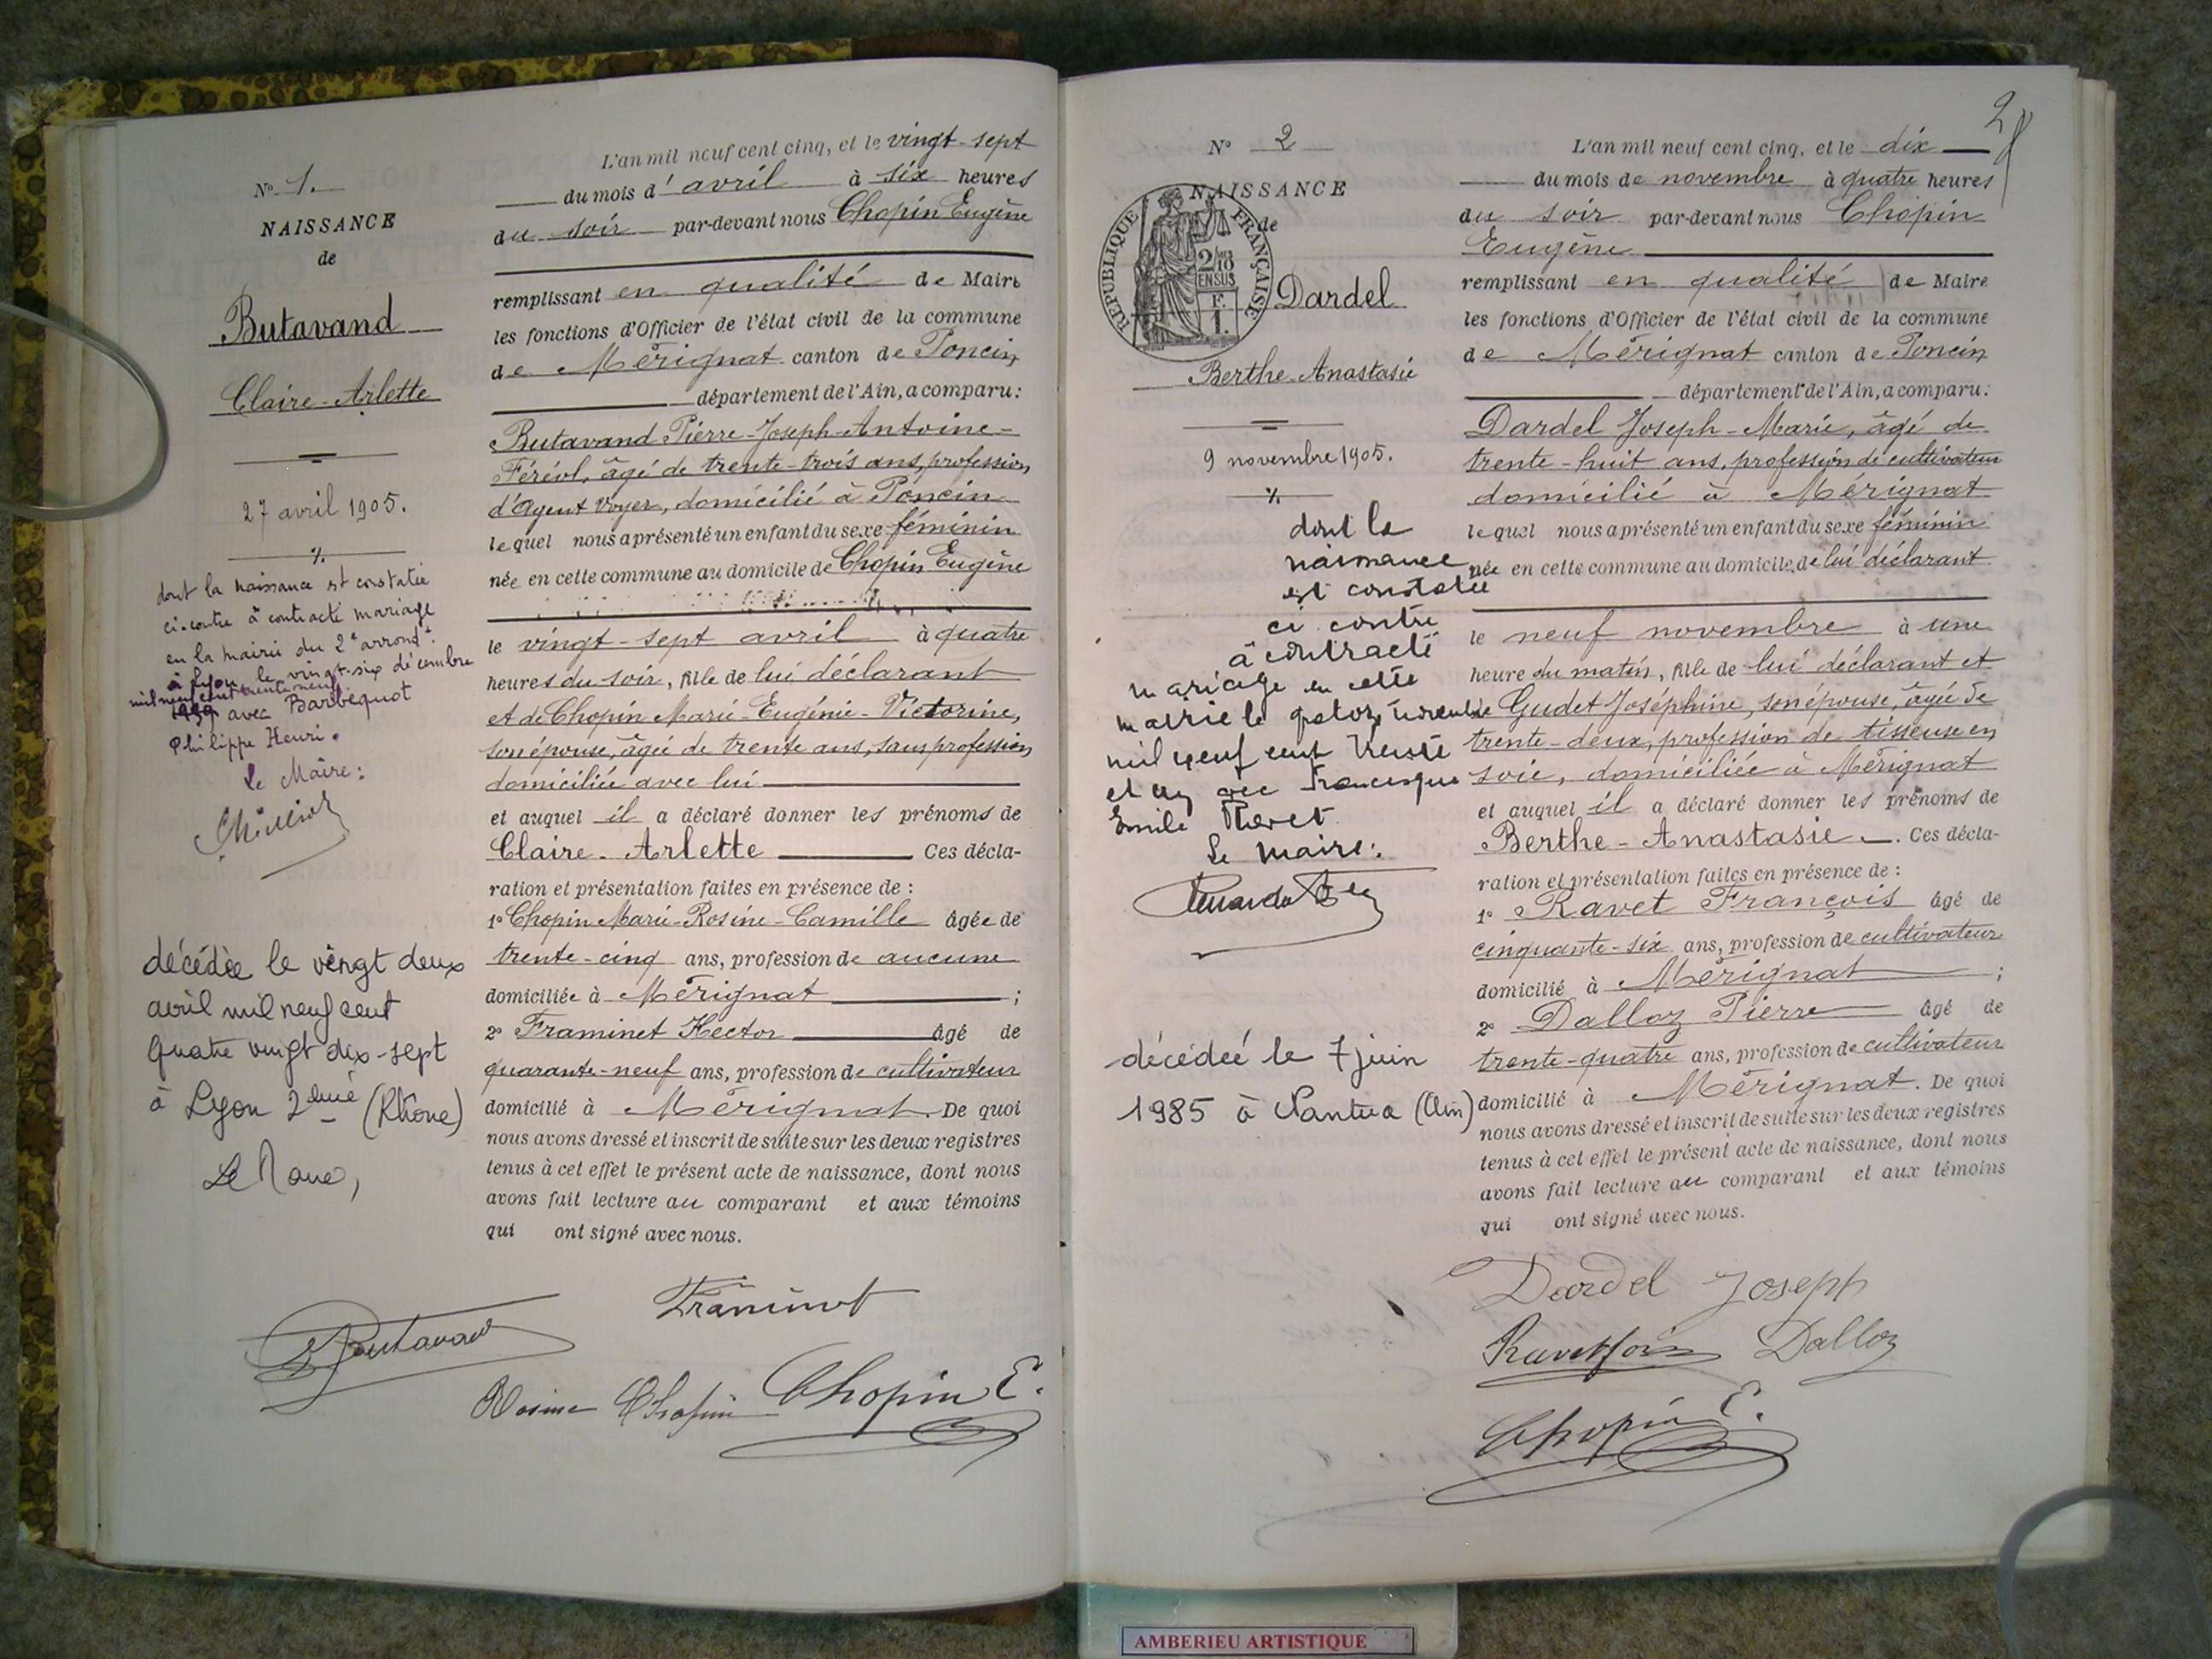 N° 1.
NAISSANCE
de
Butavand
Claire-Arlette
27 avril 1905.
dont la naissance est constatée
ci-contre à contracté mariage
en la mairie du 2e arrondt.
à Lyon le vingt-six décembre
mil neuf cent trente neuf
1939 avec Barbequot
Philippe Henri.
Le Maire:
décédée le vingt deux
avril mil neuf cent
quatre vingt dix-sept
à Lyon 2ème (Rhône)
Le Maire,
L'an mil neuf cent cinq, et le vingt-sept
du mois d'avril à six heures
du soir par-devant nous Chopin Eugène
remplissant en qualité de Maire
les fonctions d'Officier de l'état civil de la commune
de Mérignat canton de Poncin
département de l'Ain, a comparu:
Butavand Pierre-Joseph-Antoine-
Féréol, âgé de trente-trois ans, profession
d'Agent Voyer, domicilié à Poncin
lequel nous a présenté un enfant du sexe féminin
née en cette commune au domicile de Chopin Eugène
le vingt-sept avril à quatre
heures du soir, fille de lui déclarant
et de Chopin Marie-Eugénie-Victorine,
son épouse, âgée de trente ans, sans profession,
domiciliée avec lui
et auquel il a déclaré donner les prénoms de
Claire-Arlette Ces décla-
ration et présentation faites en présence de :
1° Chopin Marie-Rosine-Camille âgée de
trente-cinq ans, profession de aucune
domiciliée à Mérignat ;
2° Framinet Hector âgé de
quarante-neuf ans, profession de cultivateur
domicilié à Mérignat. De quoi
nous avons dressé et inscrit de suite sur les deux registres
tenus à cet effet le présent acte de naissance, dont nous
avons fait lecture au comparant et aux témoins
qui ont signé avec nous.
Framinet
Butavand
Rosine Chopin Chopin E.
2
N° 2
NAISSANCE
de
RÉPUBLIQUE FRANÇAISE
2/10
EN SUS
F.
1.
Dardel
Berthe-Anastasie
9 novembre 1905.
dont la
naissance
est constatée
ci contre
à contracté
mariage en cette
mairie le
mil neuf cent trente
et un avec Francisque
Emile Thevet.
Le maire:
décédée le 7 juin
1985 à Nantua (Ain)
L'an mil neuf cent cinq, et le dix
du mois de novembre à quatre heures
du soir par-devant nous Chopin
Eugène
remplissant en qualité de Maire
les fonctions d'Officier de l'état civil de la commune
de Mérignat canton de Poncin
département de l'Ain, a comparu:
Dardel Joseph-Marie, âgé de
trente-huit ans, profession de cultivateur
domicilié à Mérignat
lequel nous a présenté un enfant du sexe féminin
née en cette commune au domicile de lui déclarant
le neuf novembre à une
heure du matin, fille de lui déclarant et
de Gudet Joséphine, son épouse, âgée de
trente-deux, profession de tisseuse en
soie, domiciliée à Mérignat
et auquel il a déclaré donner les prénoms de
Berthe-Anastasie. Ces décla-
ration et présentation faites en présence de :
1° Ravet François âgé de
cinquante-six ans, profession de cultivateur
domicilié à Mérignat ;
2° Dalloz Pierre âgé de
trente-quatre ans, profession de cultivateur
domicilié à Mérignat. De quoi
nous avons dressé et inscrit de suite sur les deux registres
tenus à cet effet le présent acte de naissance, dont nous
avons fait lecture au comparant et aux témoins
qui ont signé avec nous.
Dardel Joseph
Ravet Dalloz
Chopin E.
AMBERIEU ARTISTIQUE